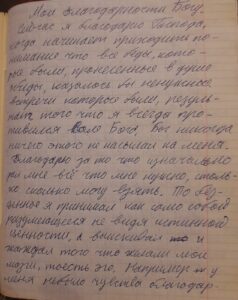 Мои благодарности Богу.
Сейчас я благодарю Господа,
когда начинает приходить по-
нимание что все беды, кото-
рые были, пронесенные в душе
обиды, казалось бы ненужные
встречи которые были, резуль-
тат того что я всегда про-
тивился воле Бога, Бог никогда
ничего этого не насылал на меня.
Благодарю за то что изначально
при мне всё что мне нужно, столь-
ко сколько могу взять. То бес-
ценное я принимал как само собой
разумеющееся не видя истинной
ценности, а выискивал и
жаждал того что желали мои
мозги, тоесть эго. Например у
меня не было чувства благодар-